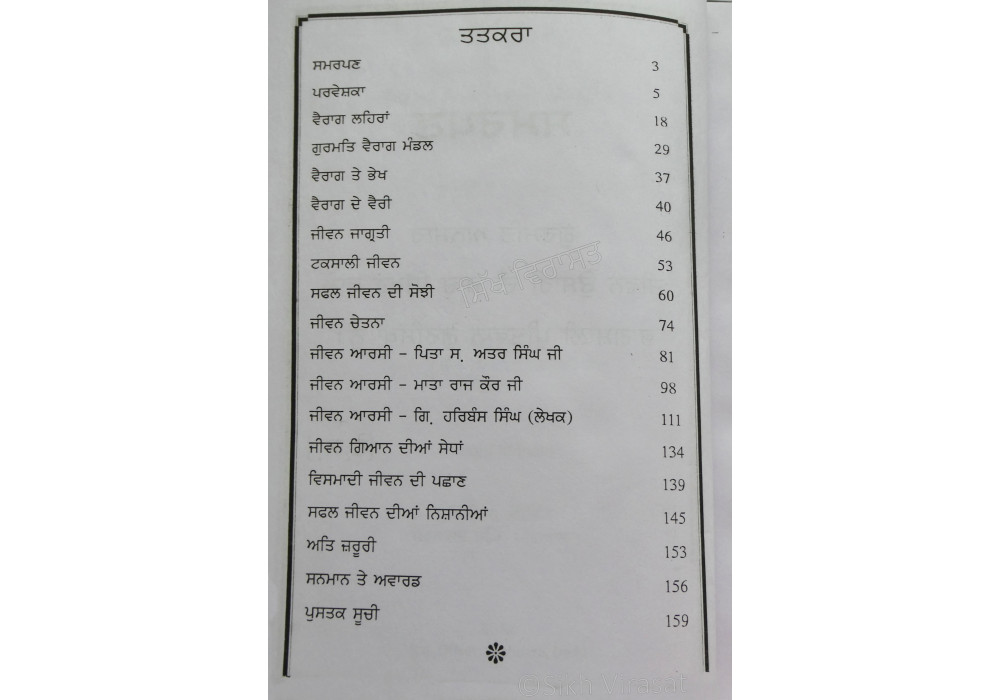 ਤਤਕਰਾ
ਸਮਰਪਣ 3
ਪਰਵੇਸ਼ਕਾ 5
ਵੈਰਾਗ ਲਹਿਰਾਂ 18
ਗੁਰਮਤਿ ਵੈਰਾਗ ਮੰਡਲ 29
ਵੈਰਾਗ ਤੇ ਭੇਖ 37
ਵੈਰਾਗ ਦੇ ਵੈਰੀ 40
ਜੀਵਨ ਜਾਗ੍ਰਤੀ 46
ਟਕਸਾਲੀ ਜੀਵਨ 53
ਸਫਲ ਜੀਵਨ ਦੀ ਸੋਝੀ 60
ਜੀਵਨ ਚੇਤਨਾ 74
ਜੀਵਨ ਆਰਸੀ - ਪਿਤਾ ਸ. ਅਤਰ ਸਿੰਘ ਜੀ 81
ਜੀਵਨ ਆਰਸੀ - ਮਾਤਾ ਰਾਜ ਕੌਰ ਜੀ 98
ਜੀਵਨ ਆਰਸੀ - ਗਿ. ਹਰਿਬੰਸ ਸਿੰਘ (ਲੇਖਕ) 111
ਜੀਵਨ ਗਿਆਨ ਦੀਆਂ ਸੇਧਾਂ 134
ਵਿਸਮਾਦੀ ਜੀਵਨ ਦੀ ਪਛਾਣ 139
ਸਫਲ ਜੀਵਨ ਦੀਆਂ ਨਿਸ਼ਾਨੀਆਂ 145
ਅਤਿ ਜ਼ਰੂਰੀ 153
ਸਨਮਾਨ ਤੇ ਅਵਾਰਡ 156
ਪੁਸਤਕ ਸੂਚੀ 159
ਸਿੱਖ ਵਿਰਾਸਤ
©Sikh Virasat